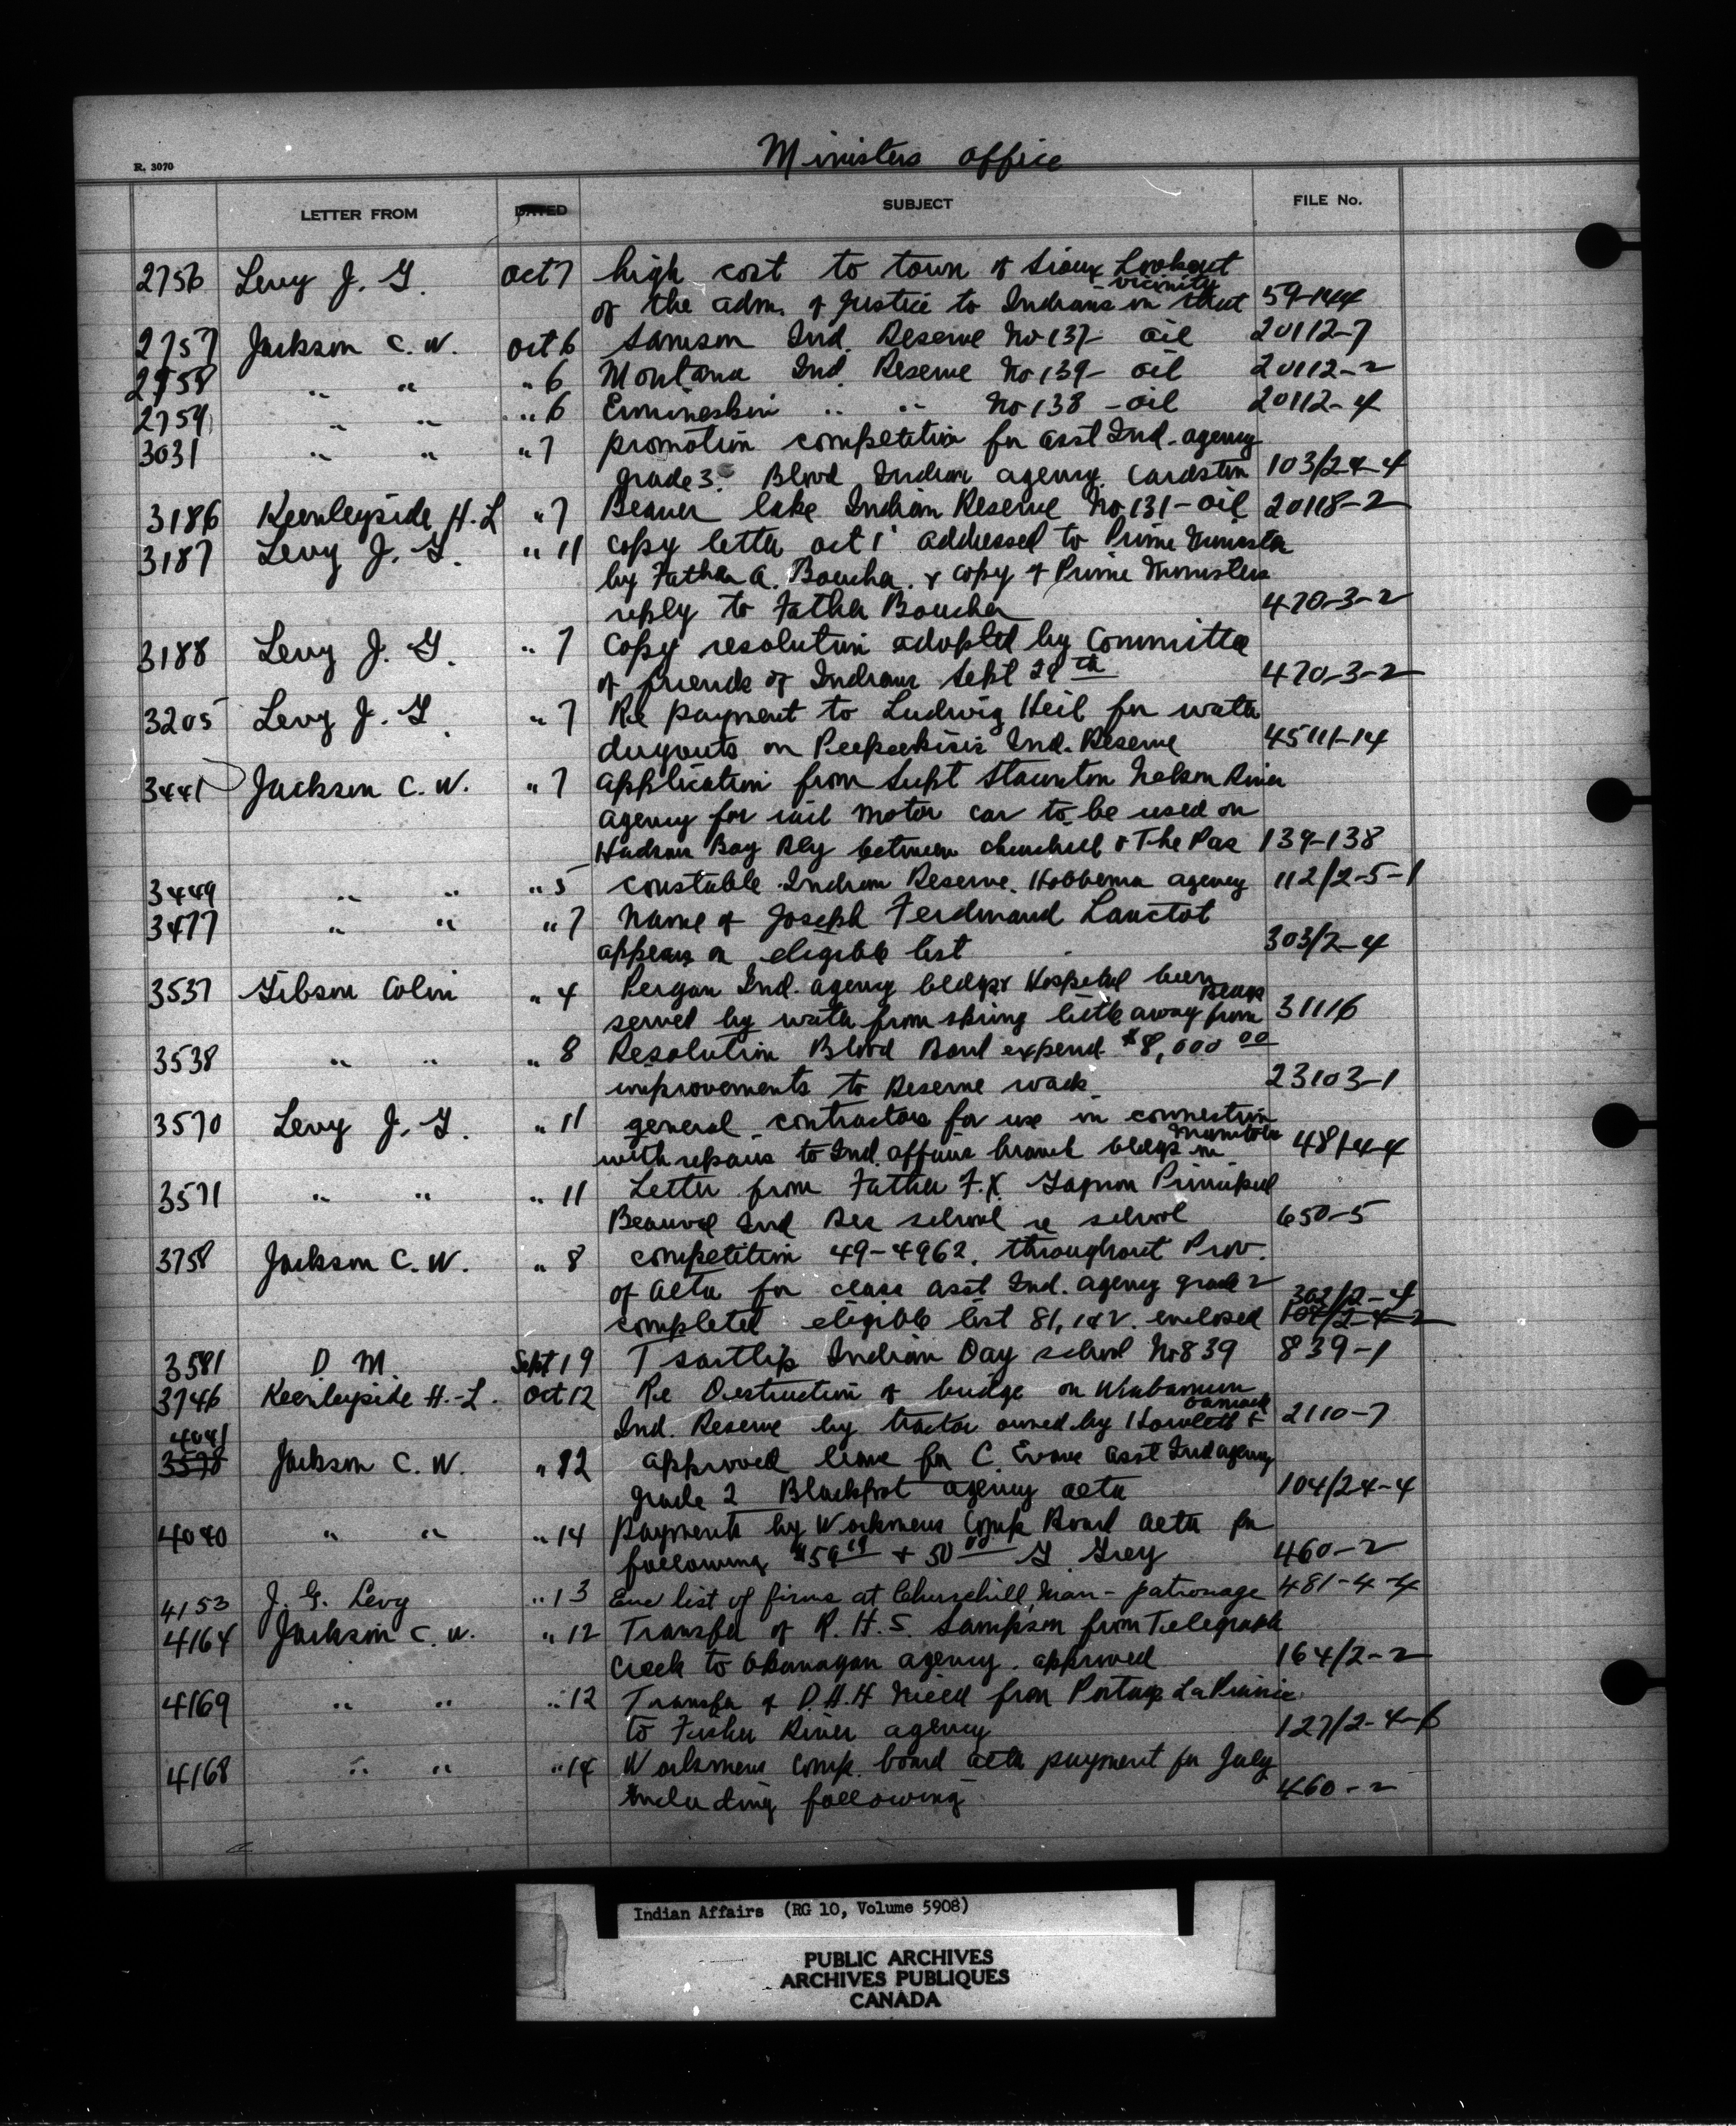 Ministers office
R. 3070
LETTER FROM DATED SUBJECT FILE No.
2756 Levy J. G. Oct 7 high cost to town of Sioux Lookout
of the adm. of Justice to Indians in that vicinity 59-144
2757 Jackson C. W. Oct 6 Samson Ind. Reserve No 137- oil 20112-7
2758 " " " 6 Montana Ind. Reserve No 139- oil 20112-2
2759 " " " 6 Ermineskin " " No 138 - oil 20112-4
3031 " " " 7 promotion competition for asst Ind. agency
grade 3. Blood Indian agency. Cardston 103/2-4-4
3186 Keenleyside H. L " 7 Beaver lake Indian Reserve No. 131 - oil 20118-2
3187 Levy J. G. " 11 copy letter oct 1 addressed to Prime Minister
by Father A. Boucher. & copy of Prime Ministers
reply to Father Boucher 470-3-2
3188 Levy J. G. " 7 Copy resolution adopted by Committee
of friends of Indians Sept 29th 470-3-2
3205 Levy J. G. " 7 Re payment to Ludwig Heil for water
dugouts on Peepeekisis Ind. Reserve 45111-14
3441 Jackson C. W. " 7 application from Supt Staunton Nelson River
agency for rail motor car to be used on
Hudson Bay Rly between churchill & The Pas 139-138
3449 " " " 5 constable Indian Reserve. Hobbema agency 112/2-5-1
3477 " " " 7 Name of Joseph Ferdinand Lanctot
appears on eligible list 303/2-4
3537 Gibson Colin " 4 Peigan Ind. agency bldgs & Hospital been
served by water from spring little away from bldgs 31116
3538 " " " 8 Resolution Blood Band expend $8,000 00
improvements to Reserve roads 23103-1
3570 Levy J. G. " 11 general contractors for use in connection
with repairs to Ind. affairs branch bldgs in Manitoba 481-4-4
3571 " " " 11 Letter from Father F. X. Gagnon Principal
Beauval Ind Res school re school 650-5
3758 Jackson C. W. " 8 competition 49-4962. throughout Prov.
of Alta for class asst Ind. agency grade 2 302/2-4
completed eligible list 81, 1&2. enclosed 104/2-4-2
3581 D M Sept 19 Tsartlip Indian Day school No 839 839-1
3746 Keenleyside H.-L. Oct 12 Re Destruction of bridge on Wabamun
Ind. Reserve by tractor owned by Howlett & 2110-7
4041
3578 Jackson C. W. " 12 approved leave for C. Evans asst Ind agency
grade 2 Blackfoot agency alta 104/2-4-4
4040 " " " 14 payments by Workmens Comp Board Alta for
following $59 19 + 50 00 G Grey 460-2
4153 J. G. Levy " 13 Enc list of firms at Churchill, Man - patronage 481-4-4
4164 Jackson C. W. " 12 Transfer of R. H. S. Sampson from Telegraph
Creek to Okanagan agency. approved 164/2-2
4169 " " " 12 Transfer of D. A. H Nield from Portage La Prairie
to Fisher River agency 127/2-4-6
4168 " " " 14 Workmens comp. board alta payment for July
including following 460-2
Indian Affairs (RG 10, Volume 5908)
PUBLIC ARCHIVES
ARCHIVES PUBLIQUES
CANADA